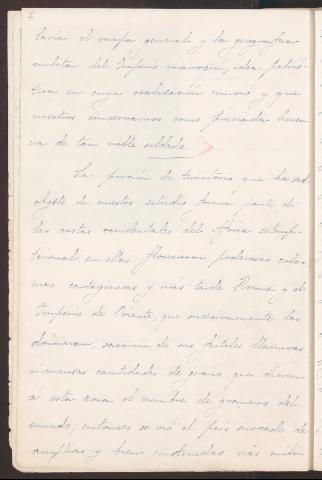 6
lavia el mapa general y la geografia
militar del Imperio marroquí, idea patrió-
tica en cuya realización murió y que
nosotros conservamos como preciada heren-
cia de tan noble soldado.
La porción de territorio que ha sido
objeto de nuestro estudio forma parte de
las costas occidentales del África septen-
trional; en ellas florecieron poderosas colo-
nias cartaginesas y más tarde Roma y el
Imperio de Oriente, que sucesivamente las
dominaron, sacaron de sus fértiles llanuras
inmensas cantidades de grano que dieron
á esta zona el nombre de granero del
mundo; entonces se vió el país cruzado de
amplias y bien construidas vías milit-